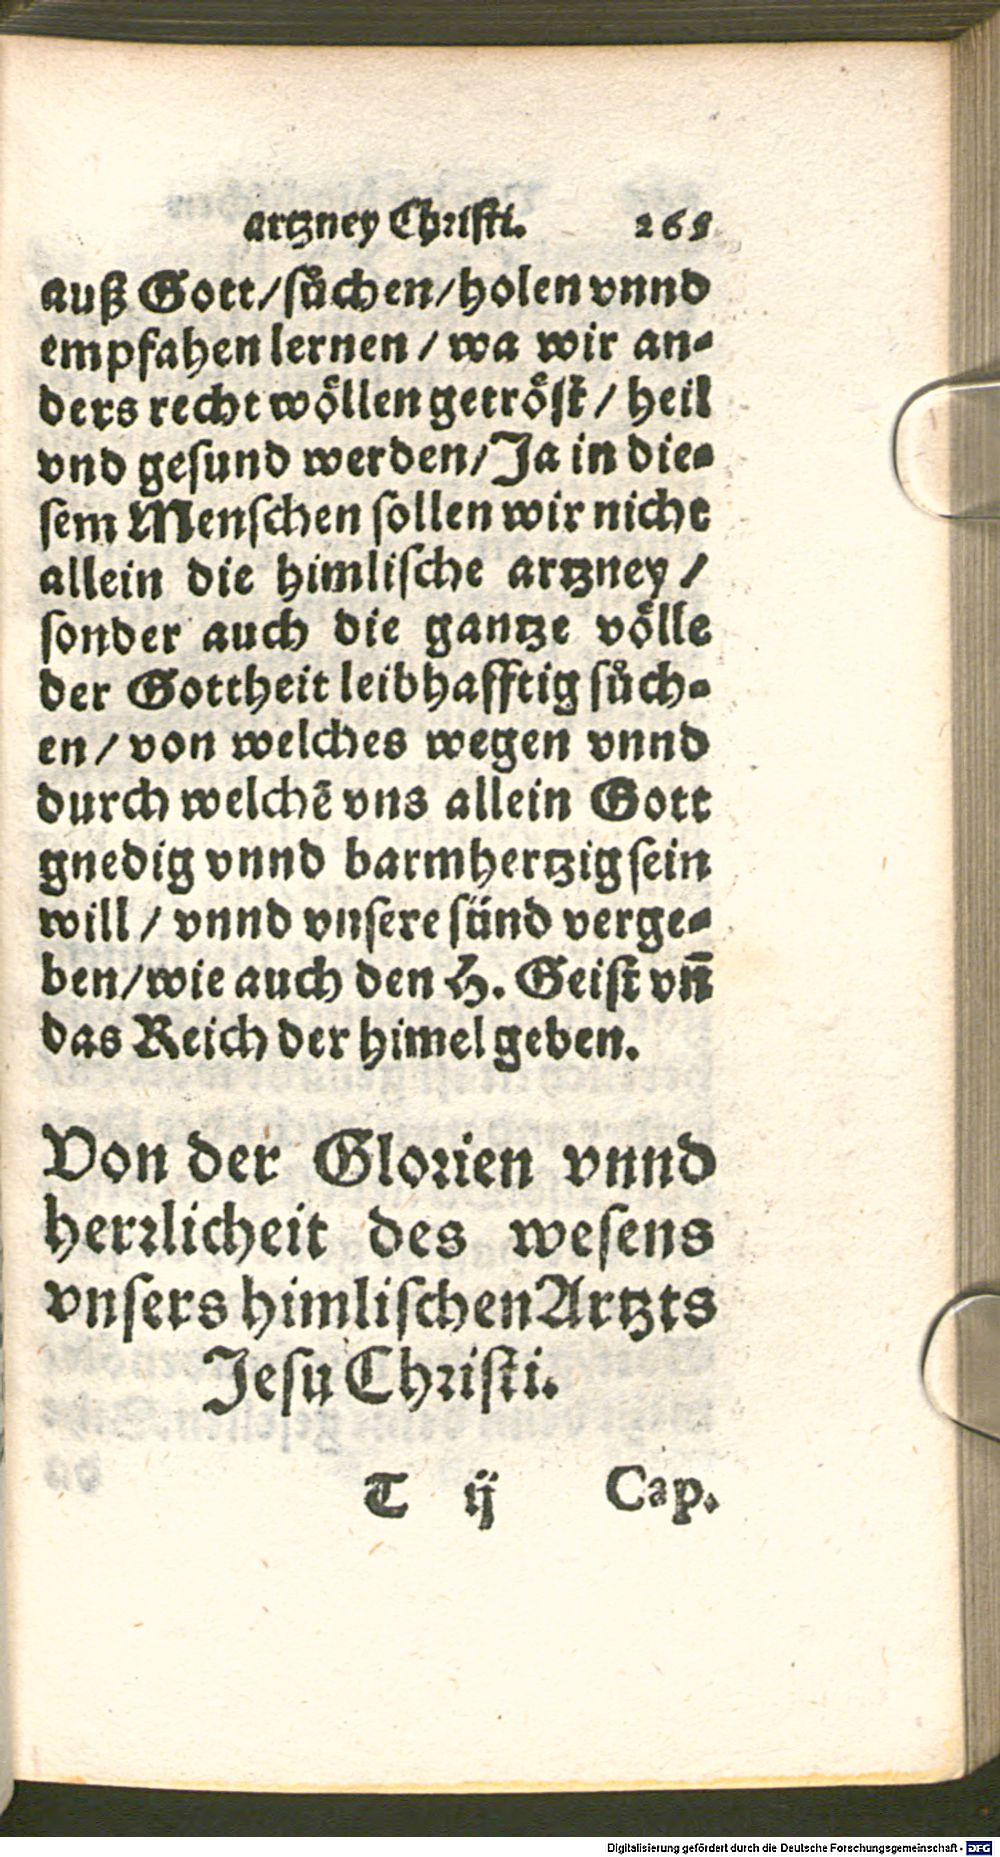 artzney Christi. 265
auß Gott/sůchen/holen vnnd
empfahen lernen / wa wir an-
ders recht wöllen getröst / heil
vnd gesund werden/Ja in die-
sem Menschen sollen wir nicht
allein die himlische artzney /
sonder auch die gantze völle
der Gottheit leibhafftig sůch-
en / von welches wegen vnnd
durch welchē vns allein Gott
gnedig vnnd barmhertzig sein
will / vnnd vnsere sünd verge-
ben/wie auch den H. Geist vñ
das Reich der himel geben.
Von der Glorien vnnd
herrlicheit des wesens
vnsers himlischen Artzts
Jesu Christi.
T ij Cap.
Digitalisierung gefördert durch die Deutsche Forschungsgemeinschaft - DFG